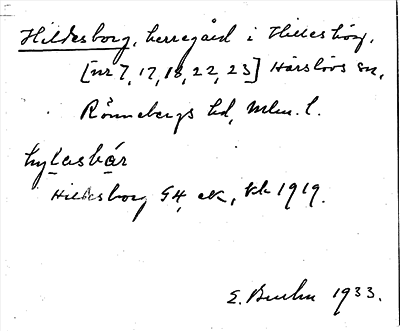 Hildesborg, herregård i Hilleshög,
[nr 7, 17, 18, 22, 23] Härslövs sn,
Rönnebergs hd, Mlm. l.
Hildesborg GH, ek, kk 1919.
E. 1933.